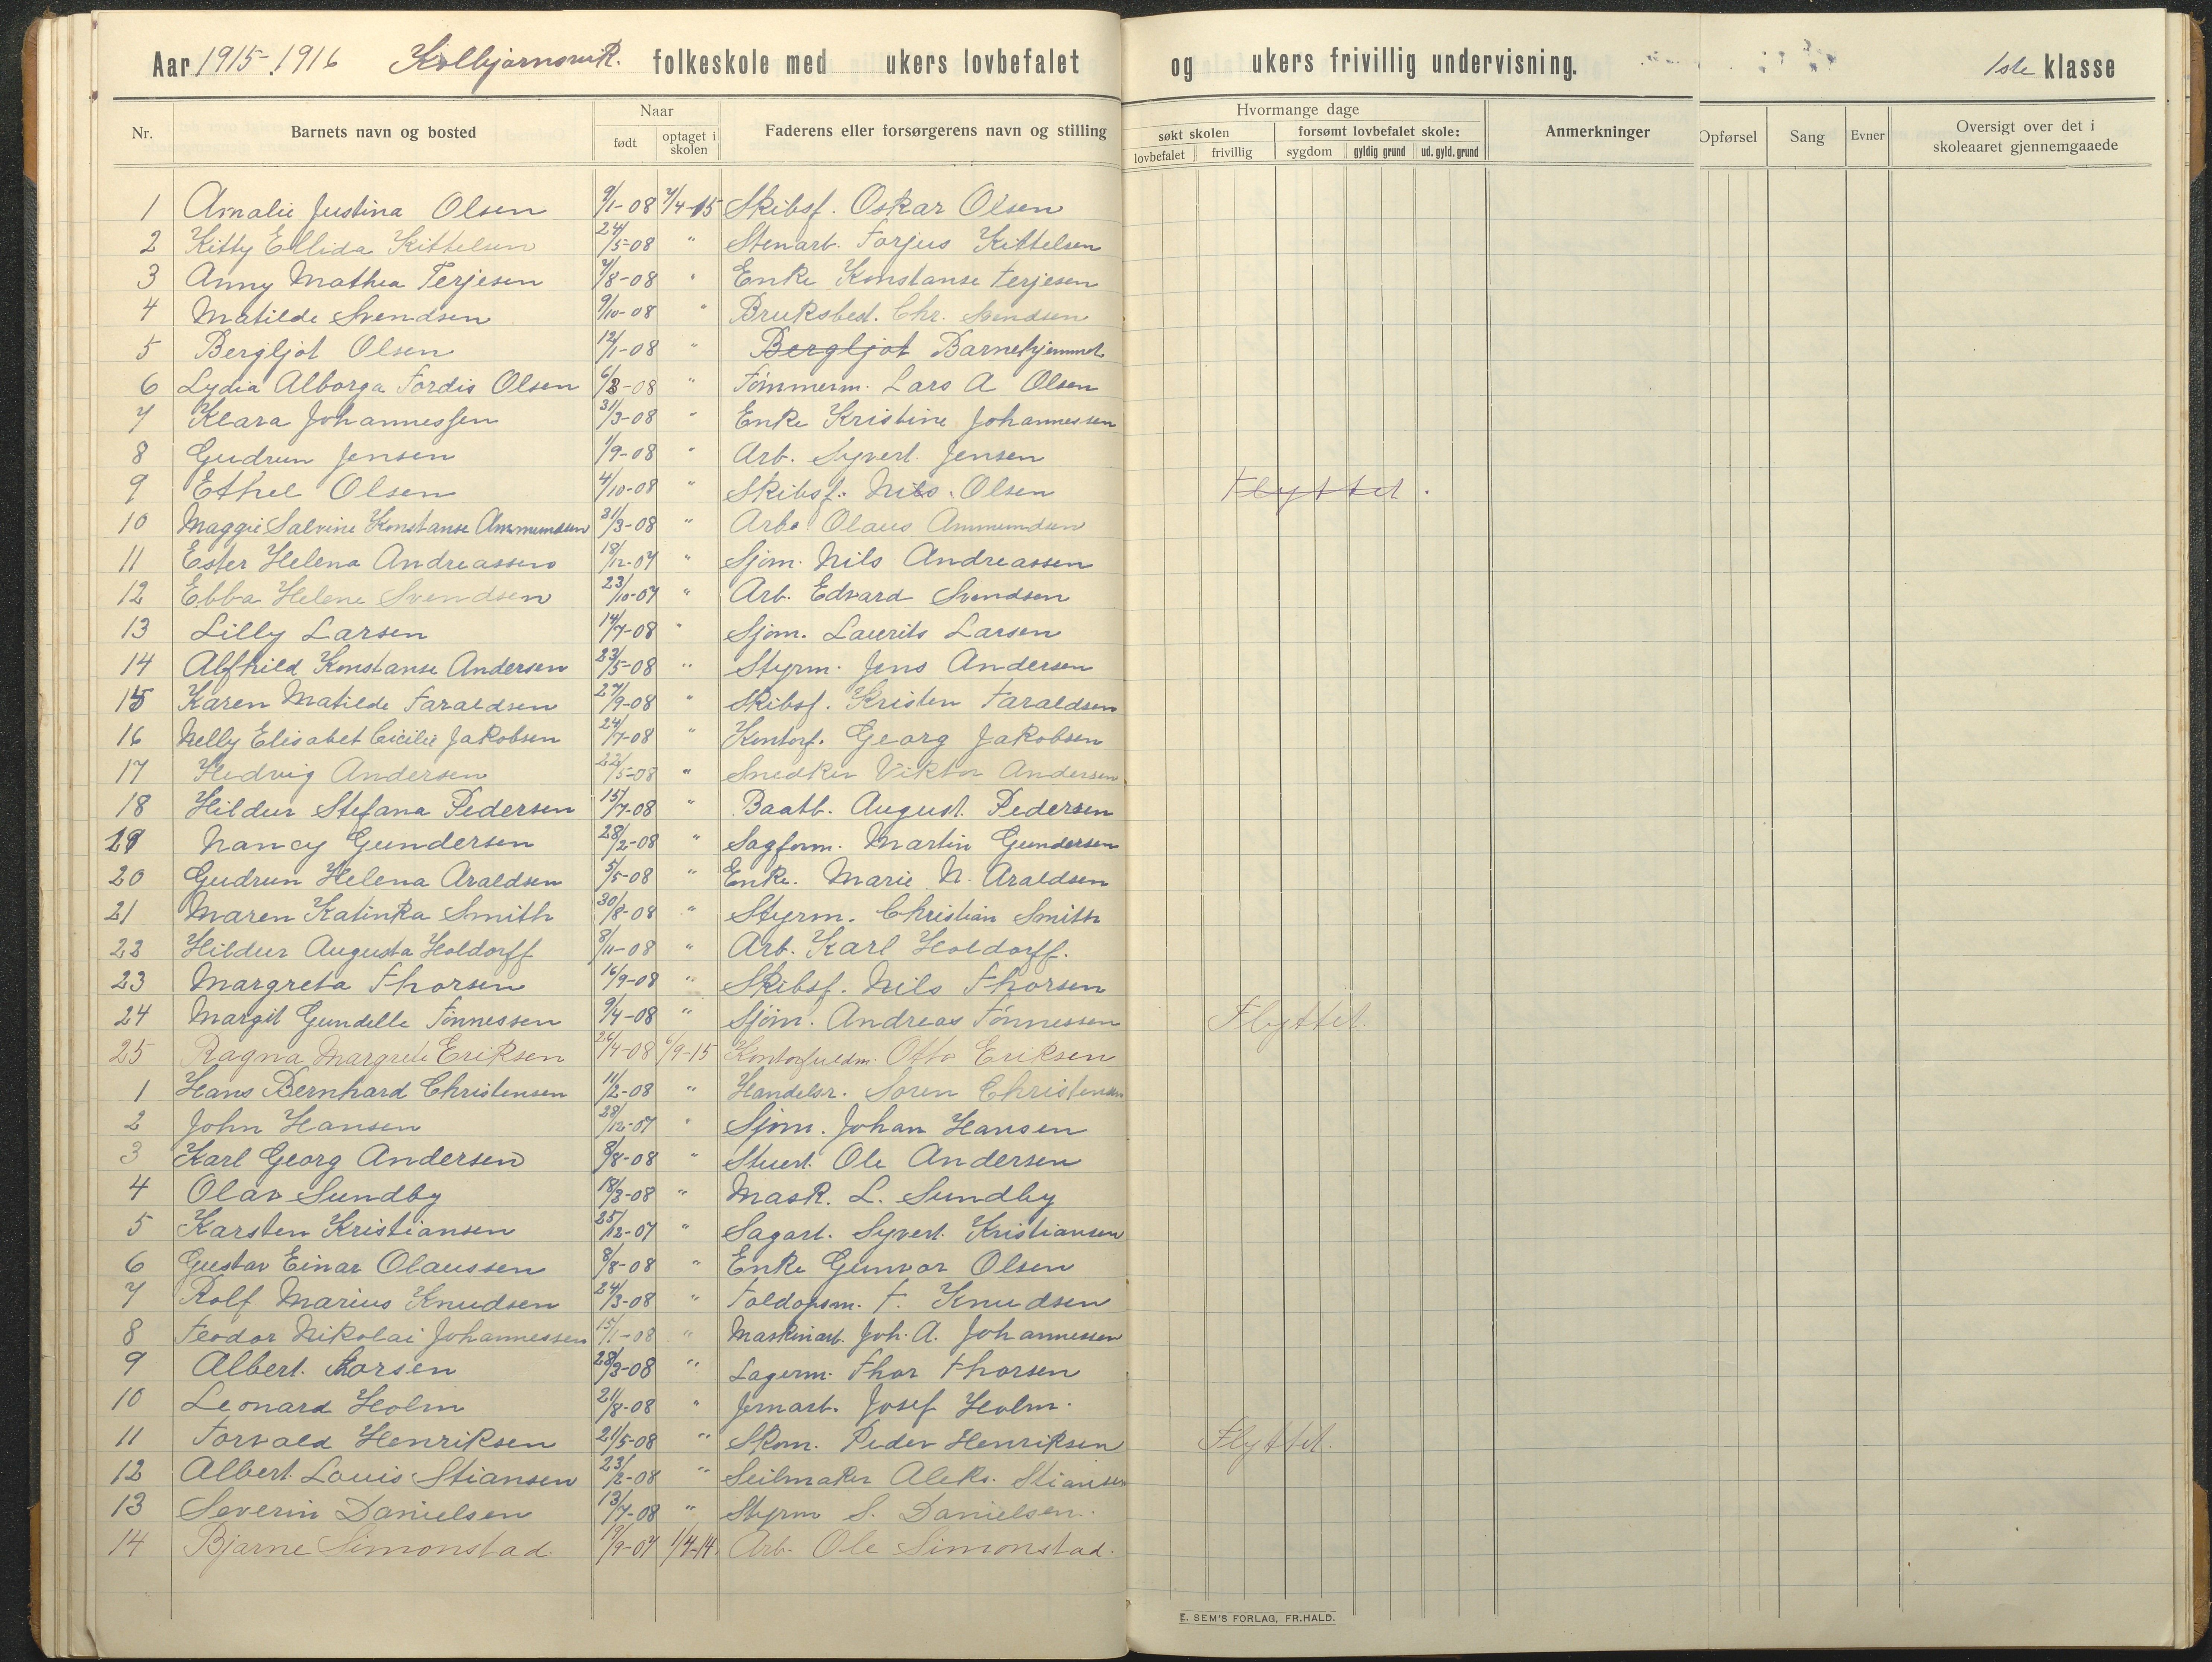 Aar 1915-1916 Kolbjørnsvik. folkeskole med ukers lovbefalet og ukers frivillig undervisning. 1ste klasse
Nr. Barnets navn og bosted Naar født optaget i skolen Faderens eller forsørgerens navn og stilling Hvormange dage søkt skolen lovbefalet frivillig forsømt lovbefalet skole: sygdom gyldig grund ud. gyld. grund Anmerkninger Opførsel Sang Evner Oversigt over det i skoleaaret gjennemgaaede
1 Amalie Justina Olsen 9/1-08 7/4-15 Skibsf. Oskar Olsen
2 Kitty Ellida Kittelsen 24/5-08 " Stenarb. Torjus Kittelsen
3 Anny Mathea Terjesen 7/8-08 " Enke Konstanse Terjesen
4 Matilde Svendsen 9/10-08 " Bruksbest. Chr. Svendsen
5 Bergljot Olsen 12/1-08 " Bergljot Barnehjemmet
6 Lydia Alborga Tordis Olsen 6/3-08 " Tømmerm. Lars A Olsen
7 Klara Johannessen 31/3-08 " Enke Kristine Johannessen
8 Gudrun Jensen 1/9-08 " Arb. Syvert Jensen
9 Ethel Olsen 4/10-08 " Skibsf. Nils Olsen Flyttet.
10 Maggie Salvine Konstanse Ammundsen 31/3-08 " Arb. Olaus Ammundsen
11 Ester Helena Andreassen 18/12-07 " Sjøm. Nils Andreassen
12 Ebba Helene Svendsen 23/10-07 " Arb. Edvard Svendsen
13 Lilly Larsen 14/7-08 " Sjøm. Laurits Larsen
14 Alfhild Konstanse Andersen 23/5-08 " Styrm. Jens Andersen
15 Karen Matilde Taraldsen 27/9-08 " Skibsf. Kristen Taraldsen
16 Nelly Elisabet Cicilie Jakobsen 24/7-08 " Kontorf. Georg Jakobsen
17 Hedvig Andersen 22/5-08 " Snedker Viktor Andersen
18 Hildur Stefana Pedersen 15/7-08 " Baatb. August Pedersen
19 Nancy Gundersen 28/2-08 " Sagform. Martin Gundersen
20 Gudrun Helena Araldsen 5/5-08 " Enke. Marie N. Araldsen
21 Maren Katinka Smith 30/8-08 " Styrm. Christian Smith
22 Hildur Augusta Holdorff 8/11-08 " Arb. Karl Holdorff.
23 Margreta Thorsen 16/9-08 " Skibsf. Nils Thorsen
24 Margit Gundelle Tønnessen 9/4-08 " Sjøm. Andreas Tønnessen Flyttet.
25 Ragna Margrete Eriksen 26/4-08 6/9-15 Kontorfuldm. Otto Eriksen
1 Hans Bernhard Christensen 11/2-08 " Handelsr. Søren Christensen
2 John Hansen 28/12-07 " Sjøm. Johan Hansen
3 Karl Georg Andersen 8/8-08 " Stuert. Ole Andersen
4 Olav Sundby 18/3-08 " Mask. L. Sundby
5 Karsten Kristiansen 25/12-07 " Sagarb. Syvert. Kristiansen
6 Gustav Einar Olaussen 8/8-08 " Enke Gunvor Olsen
7 Rolf Marius Knudsen 24/3-08 " Toldopsm. T. Knudsen
8 Teodor Nikolai Johannessen 15/1-08 " Maskinarb. Joh. A. Johannessen
9 Albert Thorsen 28/3-08 " Lagerm. Thor Thorsen
10 Leonard Holm 21/8-08 " Jernarb. Josef Holm.
11 Torvald Henriksen 21/5-08 " Skom. Peder Henriksen Flyttet.
12 Albert Louis Stiansen 23/2-08 " Seilmaker Aleks. Stiansen
13 Severin Danielsen 13/7-08 " Styrm S. Danielsen.
14 Bjarne Simonstad 19/9-07 1/4-14. Arb. Ole Simonstad.
E. SEM'S FORLAG, FR.HALD.